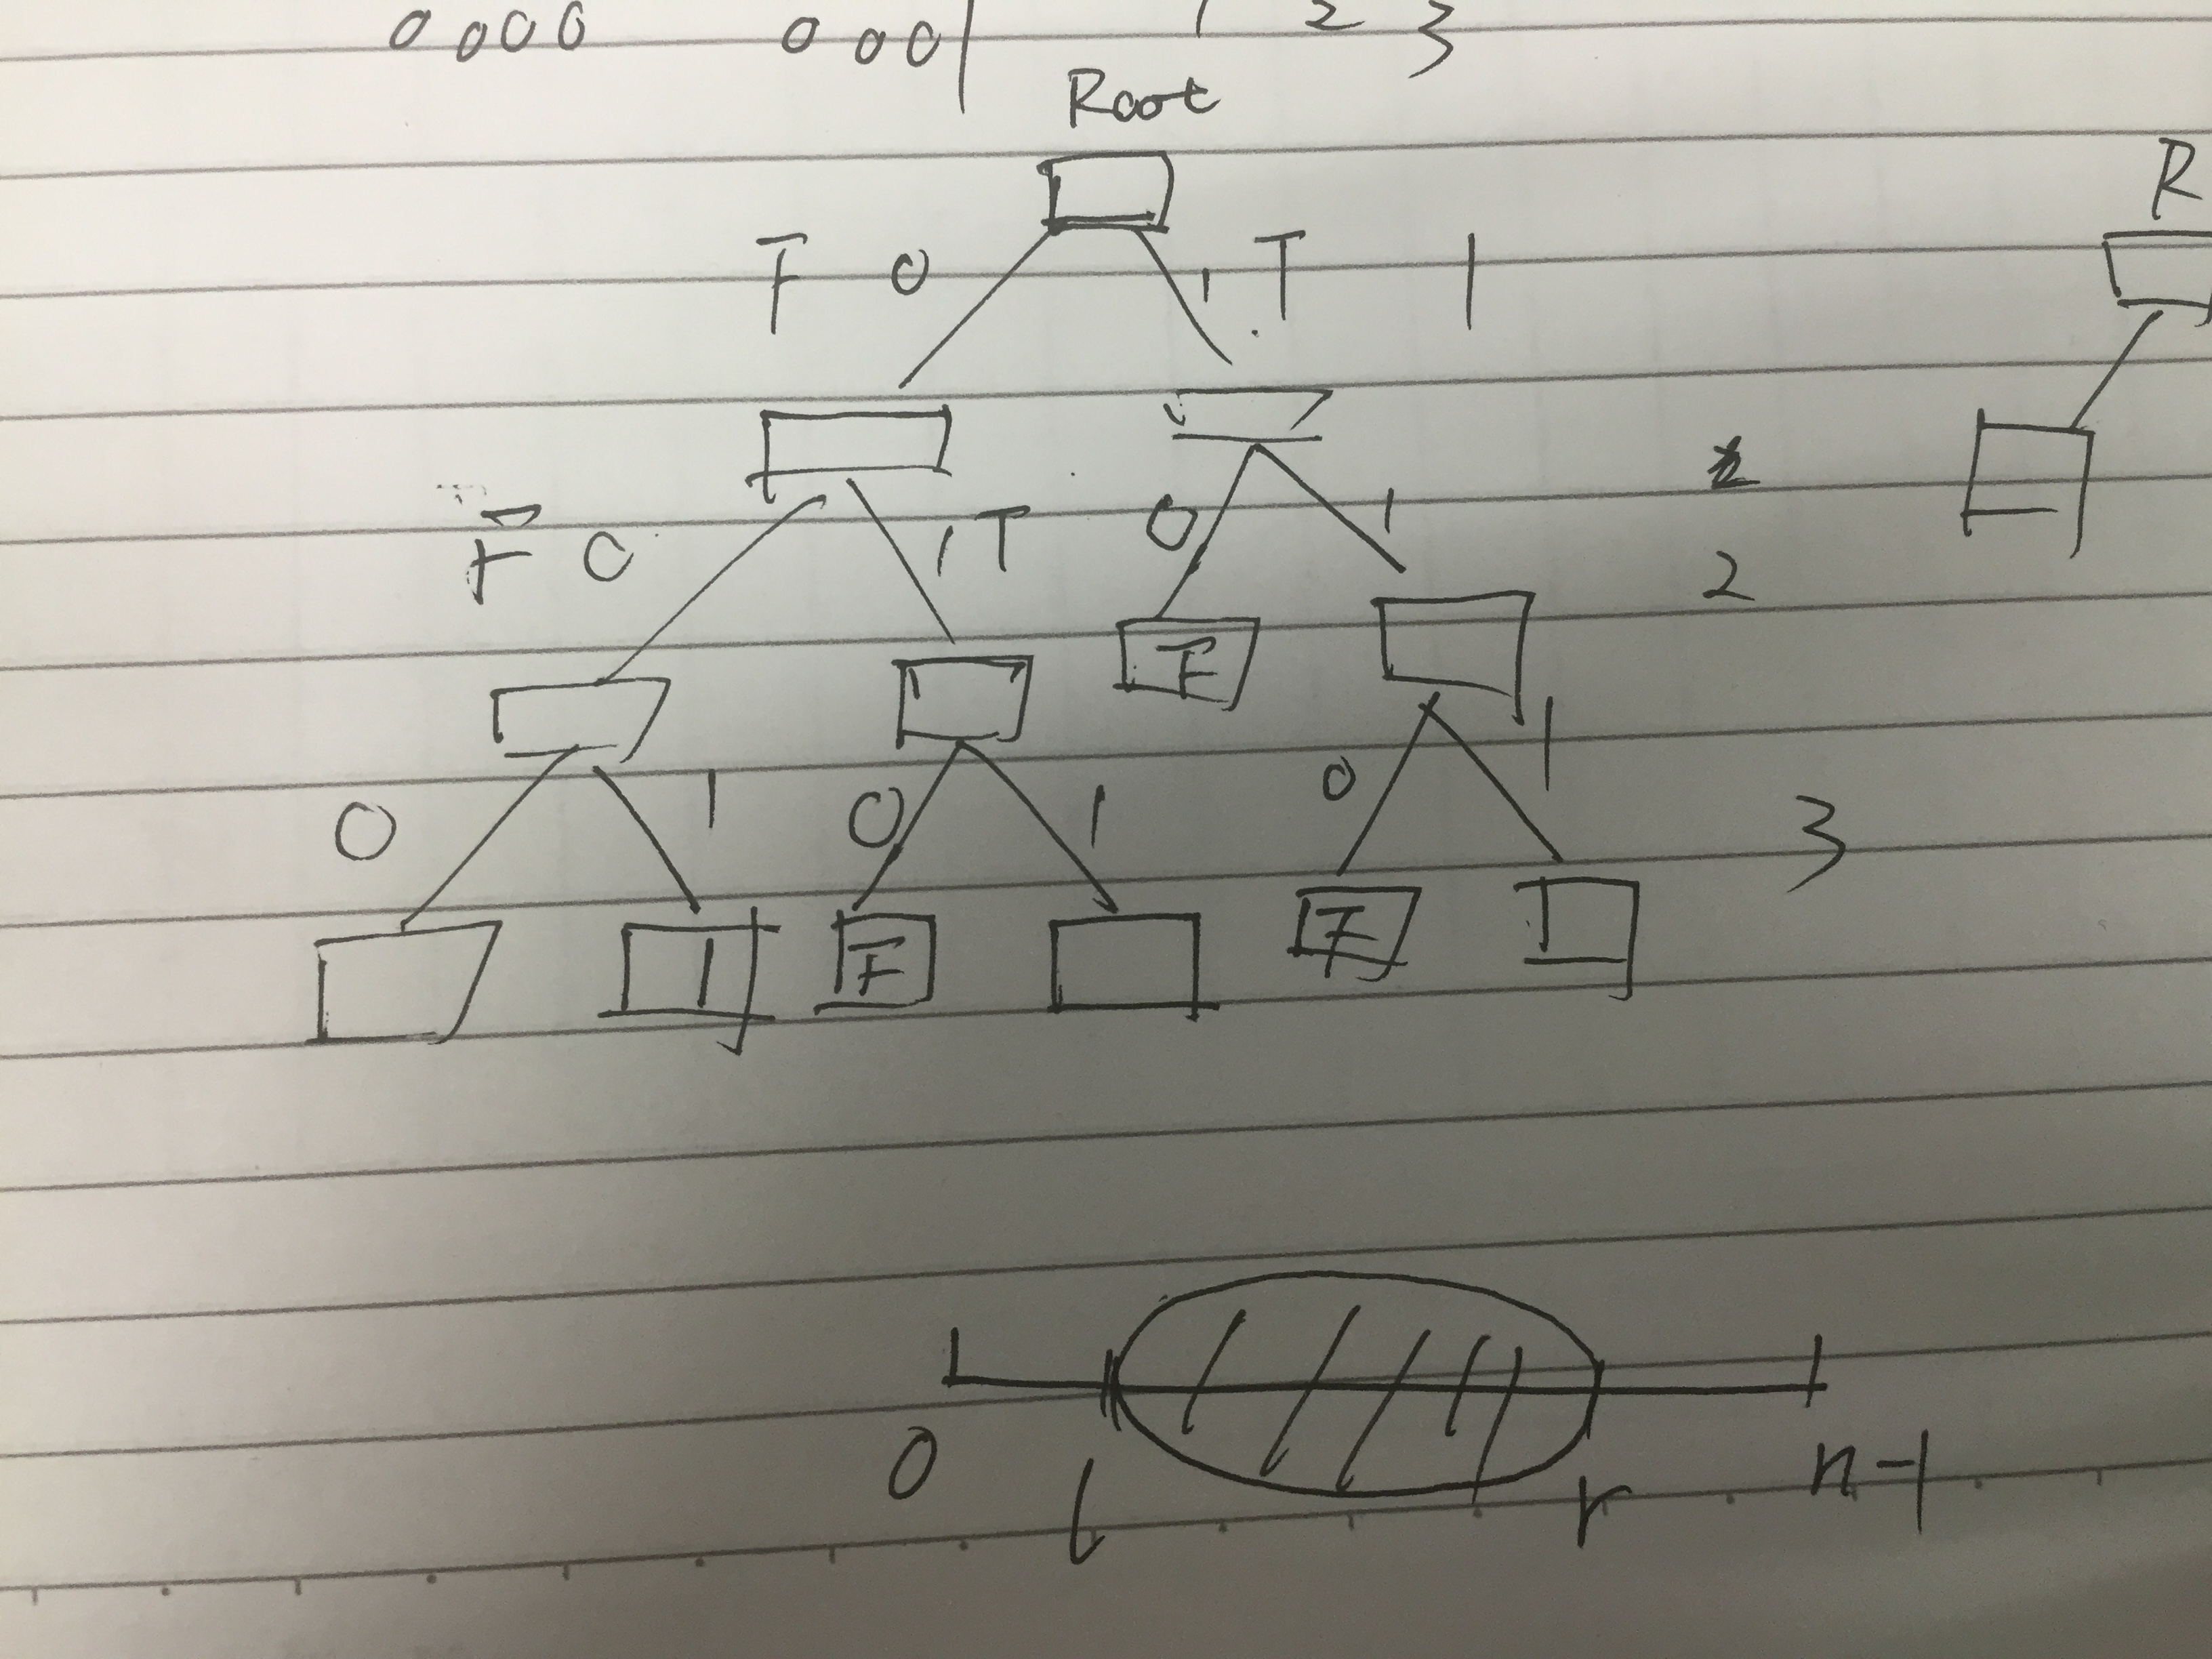 0 0 0 0 0 0 0 1 1 2 3
Root
R
F 0 1 T 1
F 0 1 T 0 1
2
F
0 1 0 1 0 1
3
1 F F
0 l r n-1